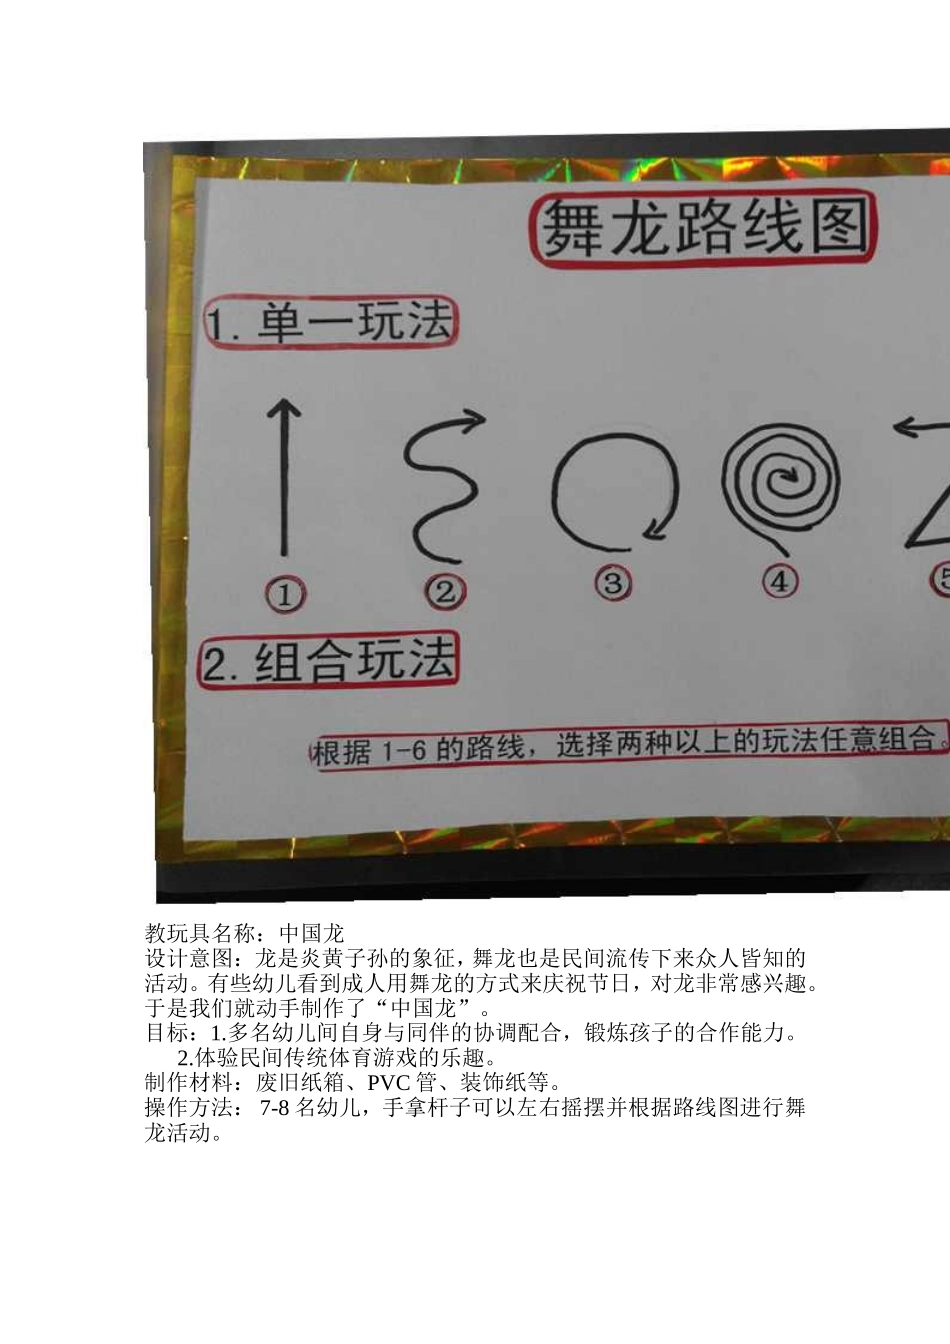 舞龙路线图
1.单一玩法
① ② ③ ④ ⑤
2.组合玩法
根据 1-6 的路线，选择两种以上的玩法任意组合。
教玩具名称：中国龙
设计意图：龙是炎黄子孙的象征，舞龙也是民间流传下来众人皆知的
活动。有些幼儿看到成人用舞龙的方式来庆祝节日，对龙非常感兴趣。
于是我们就动手制作了“中国龙”。
目标：1.多名幼儿间自身与同伴的协调配合，锻炼孩子的合作能力。
2.体验民间传统体育游戏的乐趣。
制作材料：废旧纸箱、PVC 管、装饰纸等。
操作方法： 7-8 名幼儿，手拿杆子可以左右摇摆并根据路线图进行舞
龙活动。